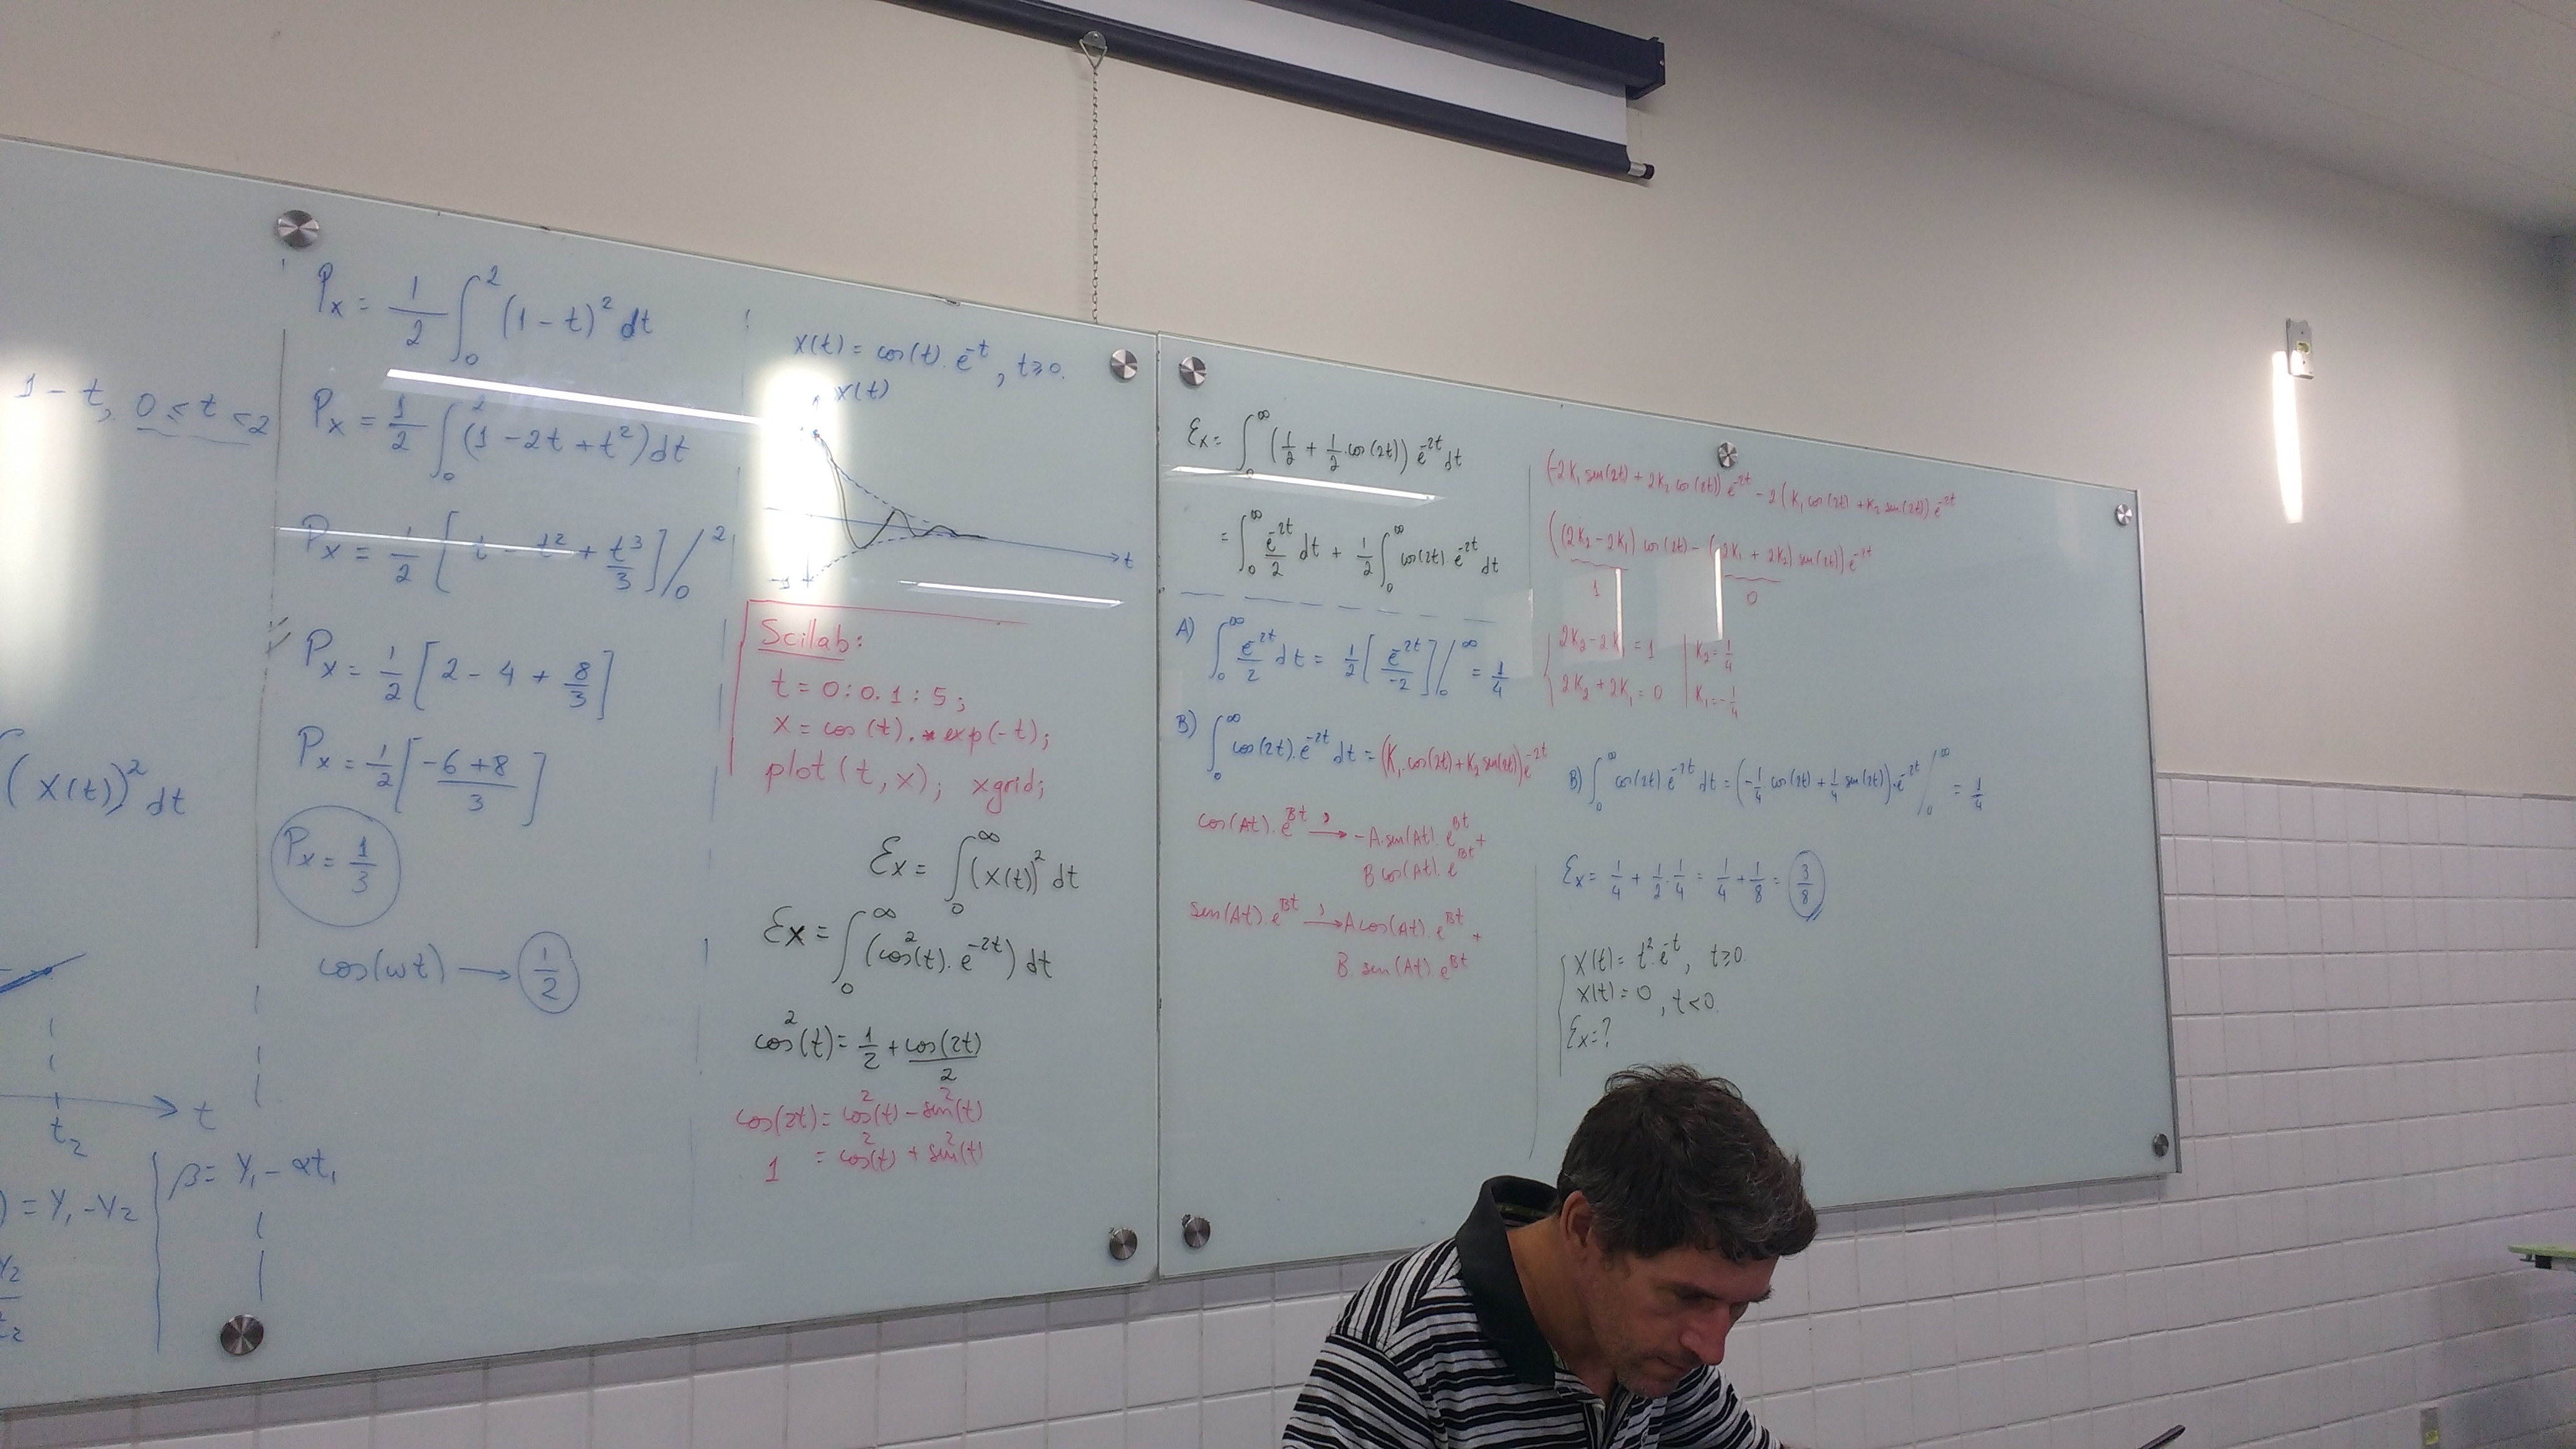 1 - t, 0 ≤ t < 2
(x(t))² dt
t
t₂
= y₁ - y₂
β = y₁ - αt₁
Px = 1/2 ∫₀² (1 - t)² dt
Px = 1/2 ∫₀² (1 - 2t + t²) dt
Px = 1/2 [t - t² + t³/3] /₀²
Px = 1/2 [2 - 4 + 8/3]
Px = 1/2 [(-6 + 8)/3]
Px = 1/3
cos(wt) → 1/2
x(t) = cos(t) . e^-t, t≥0.
x(t)
t
-1
Scilab:
t = 0:0.1:5;
x = cos(t).*exp(-t);
plot(t,x); xgrid;
Ex = ∫₀^∞ (x(t))² dt
Ex = ∫₀^∞ (cos²(t) . e^-2t) dt
cos²(t) = 1/2 + cos(2t)/2
cos(2t) = cos²(t) - sen²(t)
1 = cos²(t) + sen²(t)
Ex = ∫₀^∞ (1/2 + 1/2 . cos(2t)) e^-2t dt
= ∫₀^∞ e^-2t/2 dt + 1/2 ∫₀^∞ cos(2t) . e^-2t dt
A) ∫₀^∞ e^-2t/2 dt = 1/2 [e^-2t/-2] /₀^∞ = 1/4
B) ∫₀^∞ cos(2t) . e^-2t dt = (K₁ . cos(2t) + K₂ sen(2t)) e^-2t
cos(At) . e^Bt →' -A.sen(At) . e^Bt +
B cos(At) . e^Bt
sen(At) e^Bt →' A cos(At) . e^Bt +
B sen(At) . e^Bt
(-2K₁ sen(2t) + 2K₂ cos(2t)) e^-2t - 2(K₁ cos(2t) + K₂ sen(2t)) e^-2t
((2K₂ - 2K₁) cos(2t) - (2K₁ + 2K₂) sen(2t)) e^-2t
1 0
2K₂ - 2K₁ = 1 | K₂ = 1/4
2K₂ + 2K₁ = 0 | K₁ = -1/4
B) ∫₀^∞ cos(2t) . e^-2t dt = (-1/4 cos(2t) + 1/4 sen(2t)) . e^-2t /₀^∞ = 1/4
Ex = 1/4 + 1/2 . 1/4 = 1/4 + 1/8 = 3/8
x(t) = t² . e^-t, t≥0.
x(t) = 0, t<0.
Ex = ?